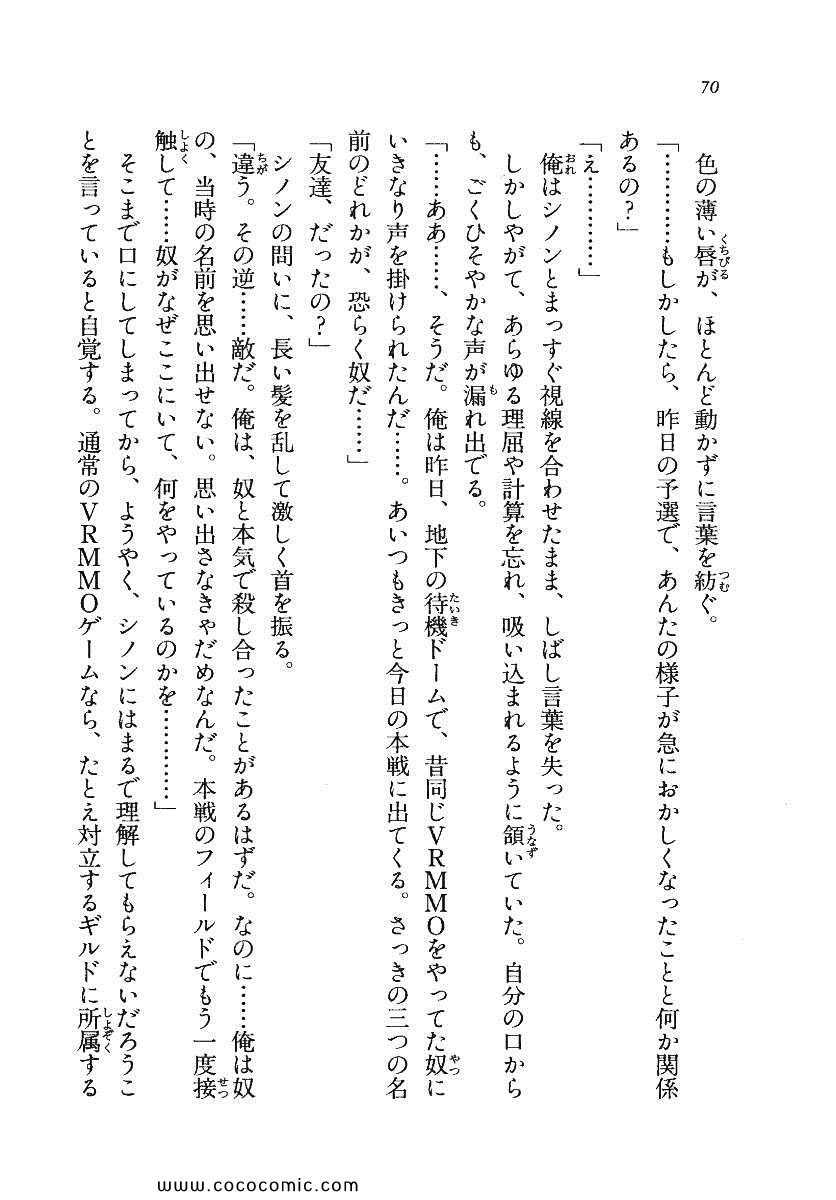 70
色の薄い唇が、ほとんど動かずに言葉を紡ぐ。
「…………もしかしたら、昨日の予選で、あんたの様子が急におかしくなったことと何か関係
あるの？」
「え…………」
俺はシノンとまっすぐ視線を合わせたまま、しばし言葉を失った。
しかしやがて、あらゆる理屈や計算を忘れ、吸い込まれるように頷いていた。自分の口から
も、ごくひそやかな声が漏れ出でる。
「……ああ……、そうだ。俺は昨日、地下の待機ドームで、昔同じＶＲＭＭＯをやってた奴に
いきなり声を掛けられたんだ……。あいつもきっと今日の本戦に出てくる。さっきの三つの名
前のどれかが、恐らく奴だ……」
「友達、だったの？」
シノンの問いに、長い髪を乱して激しく首を振る。
「違う。その逆……敵だ。俺は、奴と本気で殺し合ったことがあるはずだ。なのに……俺は奴
の、当時の名前を思い出せない。思い出さなきゃだめなんだ。本戦のフィールドでもう一度接
触して……奴がなぜここにいて、何をやっているのかを…………」
そこまで口にしてしまってから、ようやく、シノンにはまるで理解してもらえないだろうこ
とを言っていると自覚する。通常のＶＲＭＭＯゲームなら、たとえ対立するギルドに所属する
www.cococomic.com